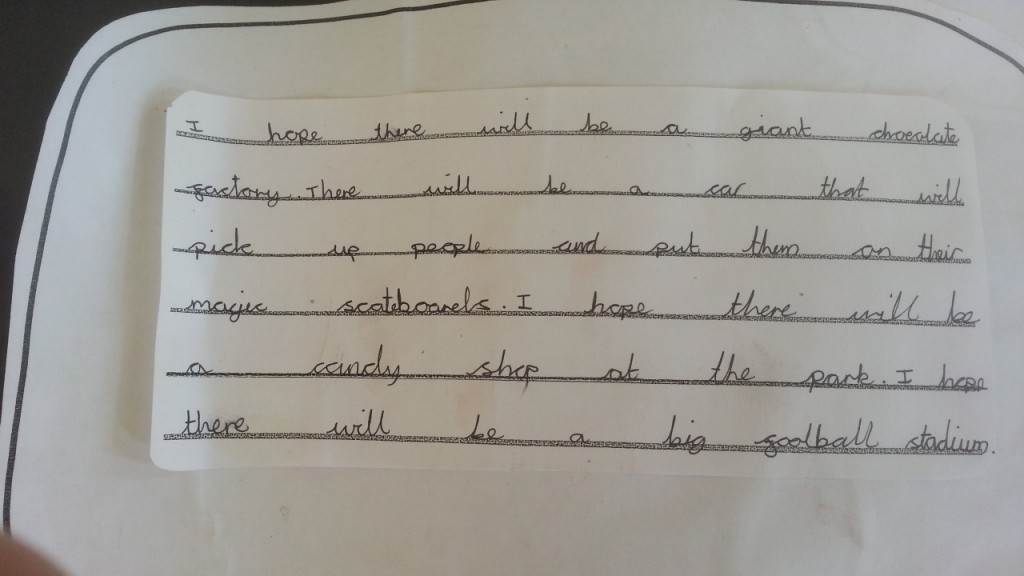 I hope there will be a giant chocolate
factory. There will be a car that will
pick up people and put them on their
magic scateboards. I hope there will be
a candy shop at the park. I hope
there will be a big football stadium.